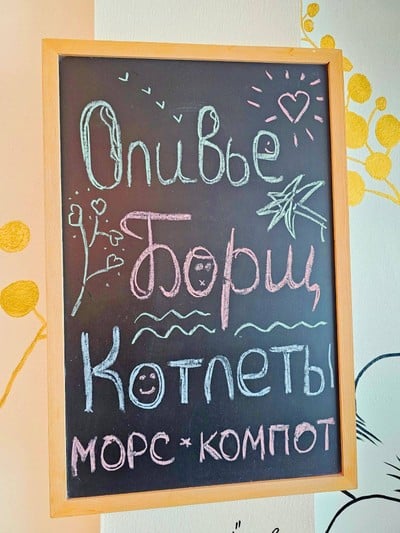 Оливье
Борщ
Котлеты
МОРС * КОМПОТ